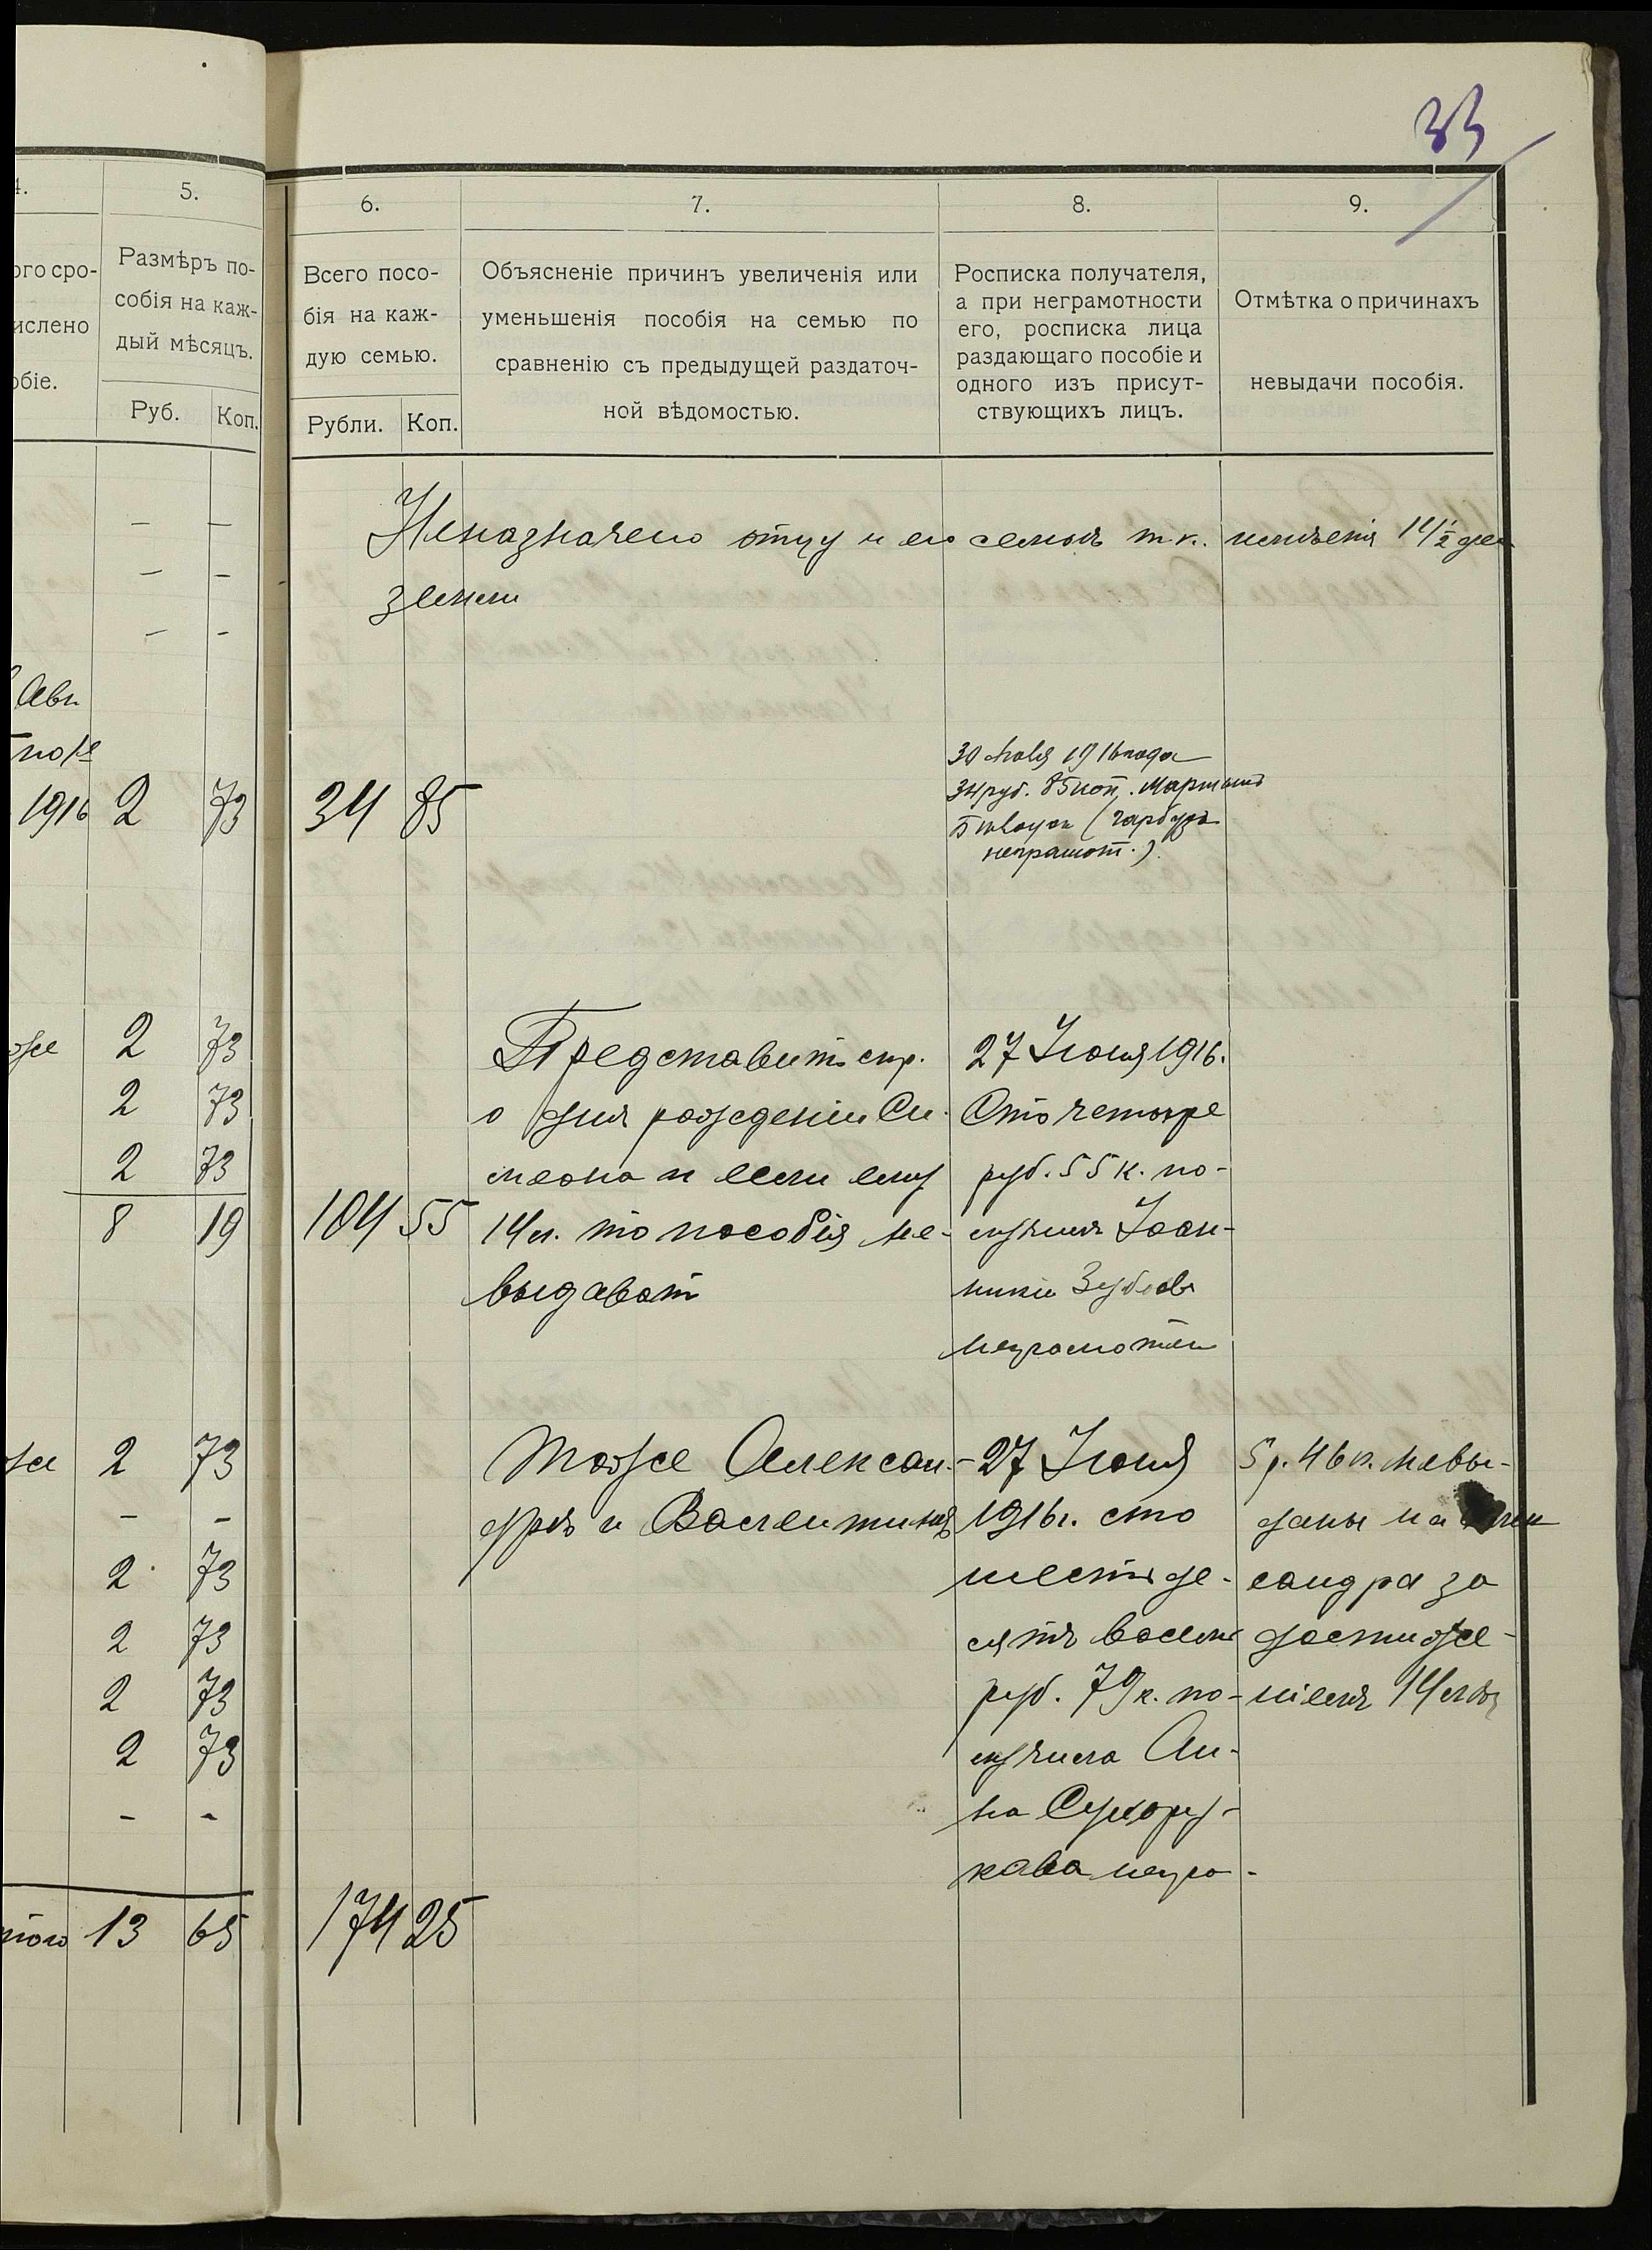 33
4.
5.
6.
7.
8.
9.
ого сро-
ислено
обіе.
Размѣръ по-
собія на каж-
дый мѣсяцъ.
Руб. Коп.
Всего посо-
бія на каж-
дую семью.
Рубли. Коп.
Объясненіе причинъ увеличенія или
уменьшенія пособія на семью по
сравненію съ предыдущей раздаточ-
ной вѣдомостью.
Росписка получателя,
а при неграмотности
его, росписка лица
раздающаго пособіе и
одного изъ присут-
ствующихъ лицъ.
Отмѣтка о причинахъ
невыдачи пособія.
— —
— —
— -
Неназначено отцу и его семьѣ т.к. имѣетъ 14½ дес
земли
Авг
по 1е
1916 2 73
34 85
30 Июля 1916 года
34 руб. 85 коп. Мартынъ
(Гарбузъ
неграмот.).
оже 2 73
2 73
2 73
8 19
104 55
Представить спр.
о днѣ рожденія Си-
меона и если ему
14 л. то пособія не-
выдават
27 Іюня 1916.
Сто четыре
руб. 55 к. по-
лучилъ Іоан-
никій Зубковъ
неграмотен
же 2 73
- -
2 73
2 73
2 73
2 73
- -
итого 13 65
174 25
Тоже Алексан-
дрѣ и Валентинѣ
27 Іюня
1916 г. сто
шестьде-
сятъ восемь
руб. 79 к. по-
лучила Ан-
на Сухору-
кова негра-
5 р. 46 к. невы-
даны на Алек
сандра за
достиже-
ніемъ 14 лѣт